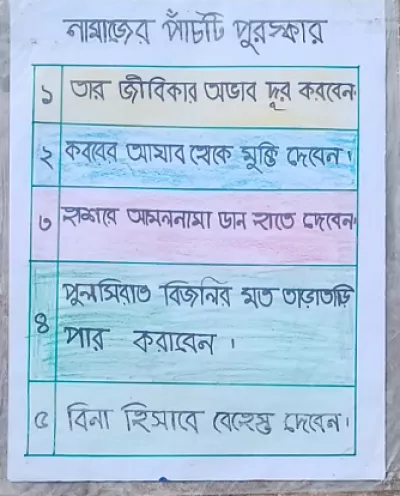 নামাজের পাঁচটি পুরস্কার
১ তার জীবিকার অভাব দূর করবেন
২ কবরের আযাব থেকে মুক্তি দেবেন।
৩ হাশরে আমলনামা ডান হাতে দেবেন
৪ পুলসিরাত বিজলির মত তাড়াতাড়ি
পার করাবেন।
৫ বিনা হিসাবে বেহেস্ত দেবেন।